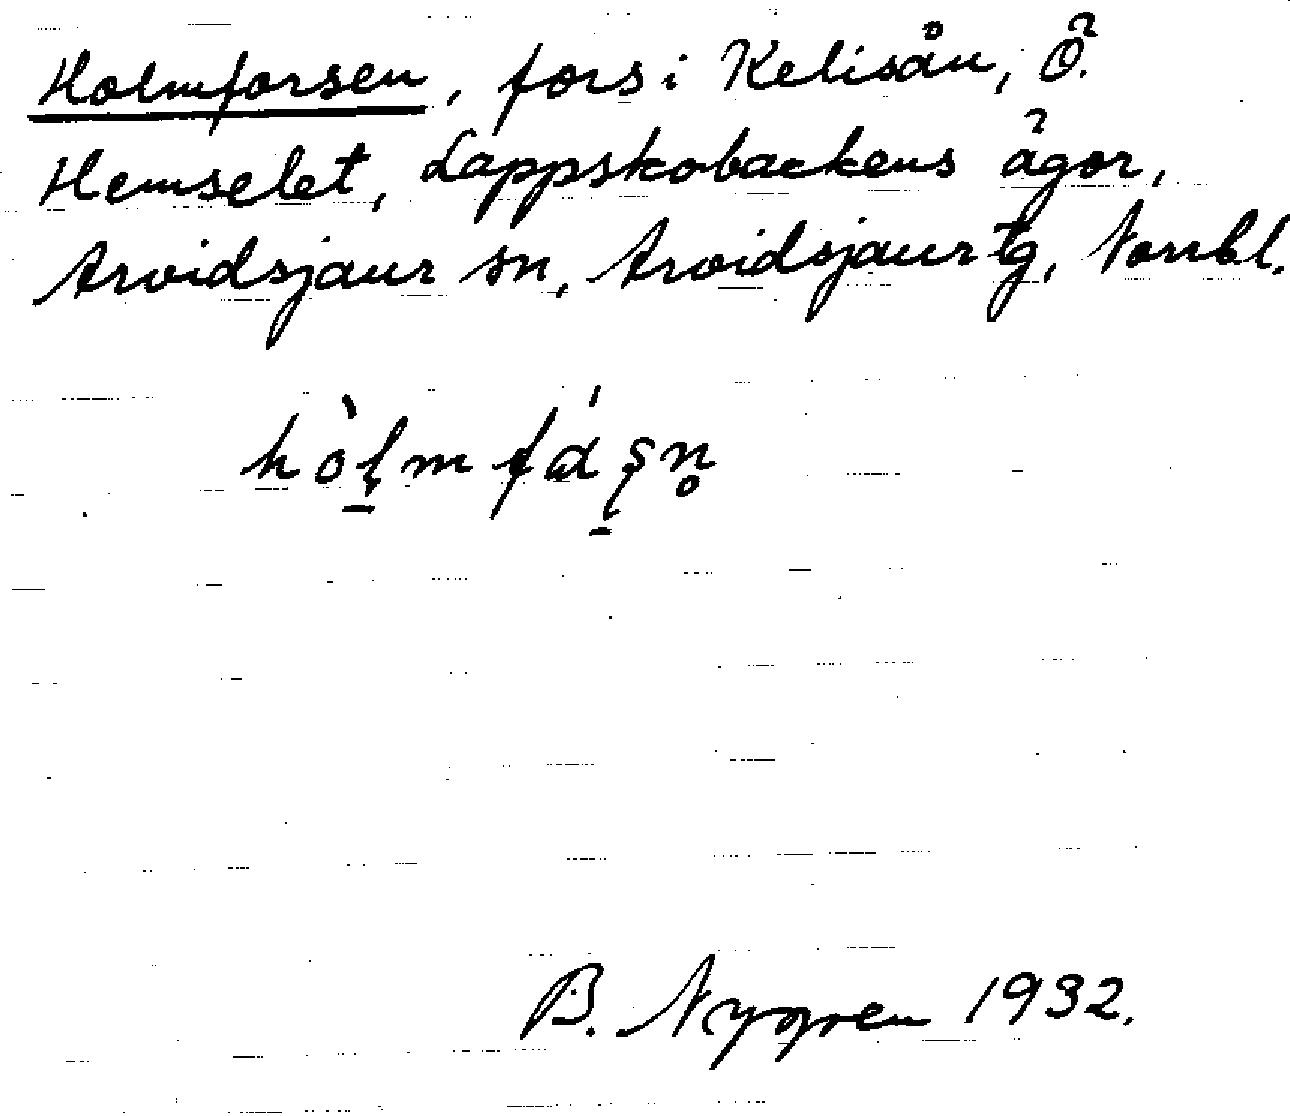 Holmforsen, fors i Kelisån, Ö.
Hemselet, Lappskobackens ägor,
Arvidsjaur sn, Arvidsjaur tg, Norrbl.
B. Nygren 1932.